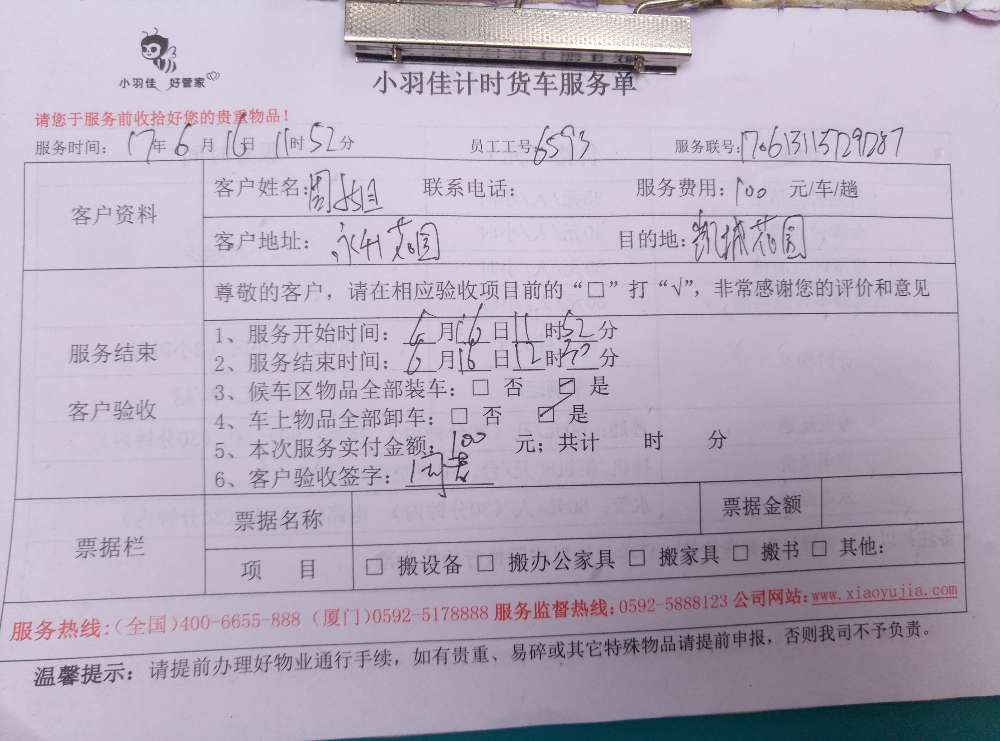 小羽佳 好管家
小羽佳计时货车服务单
请您于服务前收拾好您的贵重物品！
服务时间：17年6月16日11时52分 员工工号：6593 服务联号：170613115729287
客户资料
客户姓名：周 联系电话： 服务费用：100 元/车/趟
客户地址：永升花园 目的地：凯城花园
服务结束
客户验收
尊敬的客户，请在相应验收项目前的“□”打“√”，非常感谢您的评价和意见
1、服务开始时间：6月16日11时52分
2、服务结束时间：6月16日12时30分
3、候车区物品全部装车：□ 否 ☑ 是
4、车上物品全部卸车：□ 否 ☑ 是
5、本次服务实付金额：100 元；共计 时 分
6、客户验收签字：
票据栏
票据名称 票据金额
项 目 □ 搬设备 □ 搬办公家具 □ 搬家具 □ 搬书 □ 其他：
服务热线：（全国）400-6655-888（厦门）0592-5178888 服务监督热线：0592-5888123 公司网站：www.xiaoyujia.com
温馨提示：请提前办理好物业通行手续，如有贵重、易碎或其它特殊物品请提前申报，否则我司不予负责。